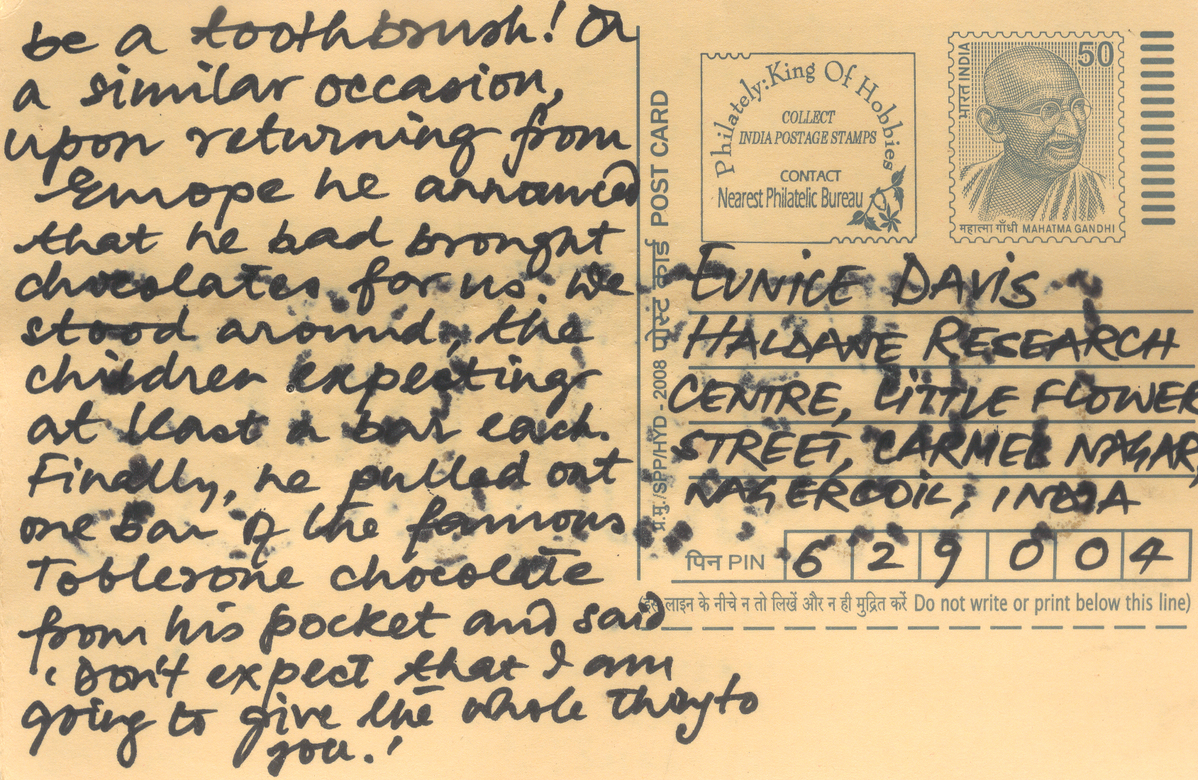 be a toothbrush! On
a similar occasion,
upon returning from
Europe he announced
that he had brought
chocolates for us. We
stood around, the
children expecting
at least a bar each.
Finally, he pulled out
one bar of the famous
Toblerone chocolate
from his pocket and said
'Don't expect that I am
going to give the whole thing to
you.'
प्र.मु./SPP/HYD - 2008 पोस्ट कार्ड POST CARD
Philately: King Of Hobbies
COLLECT
INDIA POSTAGE STAMPS
CONTACT
Nearest Philatelic Bureau
भारत INDIA
50
महात्मा गाँधी MAHATMA GANDHI
EUNICE DAVIS
HALDANE RESEARCH
CENTRE, LITTLE FLOWER
STREET, CARMEL NAGAR,
NAGERCOIL, INDIA
पिन PIN 6 2 9 0 0 4
(इस लाइन के नीचे न तो लिखें और न ही मुद्रित करें Do not write or print below this line)